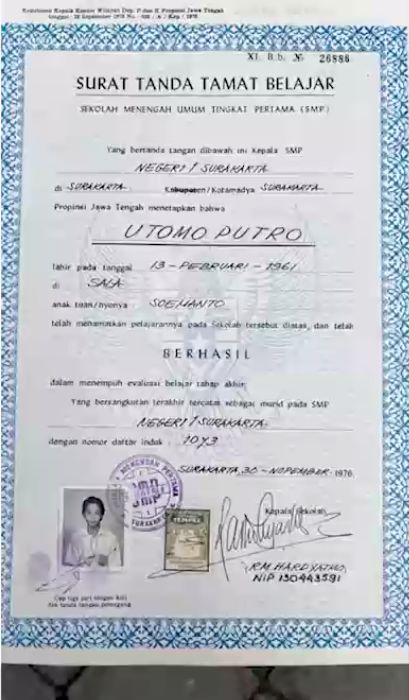 Keputusan Kepala Kantor Wilayah Dep. P dan K Propinsi Jawa Tengah
tanggal : 28 September 1976 No.
XI. B.b. № 26886
SURAT TANDA TAMAT BELAJAR
SEKOLAH MENENGAH UMUM TINGKAT PERTAMA (SMP)
Yang bertanda tangan dibawah ini Kepala SMP
NEGERI I SURAKARTA
di SURAKARTA Kabupaten/Kotamadya SURAKARTA
Propinsi Jawa Tengah menetapkan bahwa
UTOMO PUTRO
lahir pada tanggal 13-PEBRUARI-1961
di SALA
anak tuan/nyonya SOEMANTO
telah menamatkan pelajarannya pada Sekolah tersebut diatas, dan telah
BERHASIL
dalam menempuh evaluasi belajar tahap akhir.
Yang bersangkutan terakhir tercatat sebagai murid pada SMP
NEGERI I SURAKARTA
dengan nomor daftar induk :
SURAKARTA, 30-NOPEMBER 1976
MENENGAH PERTAMA
SMP
SURAKARTA
Kepala Sekolah
R.M. HARDYATNO
NIP 130443591
Cap tiga jari tengah kiri
dan tanda tangan pemegang